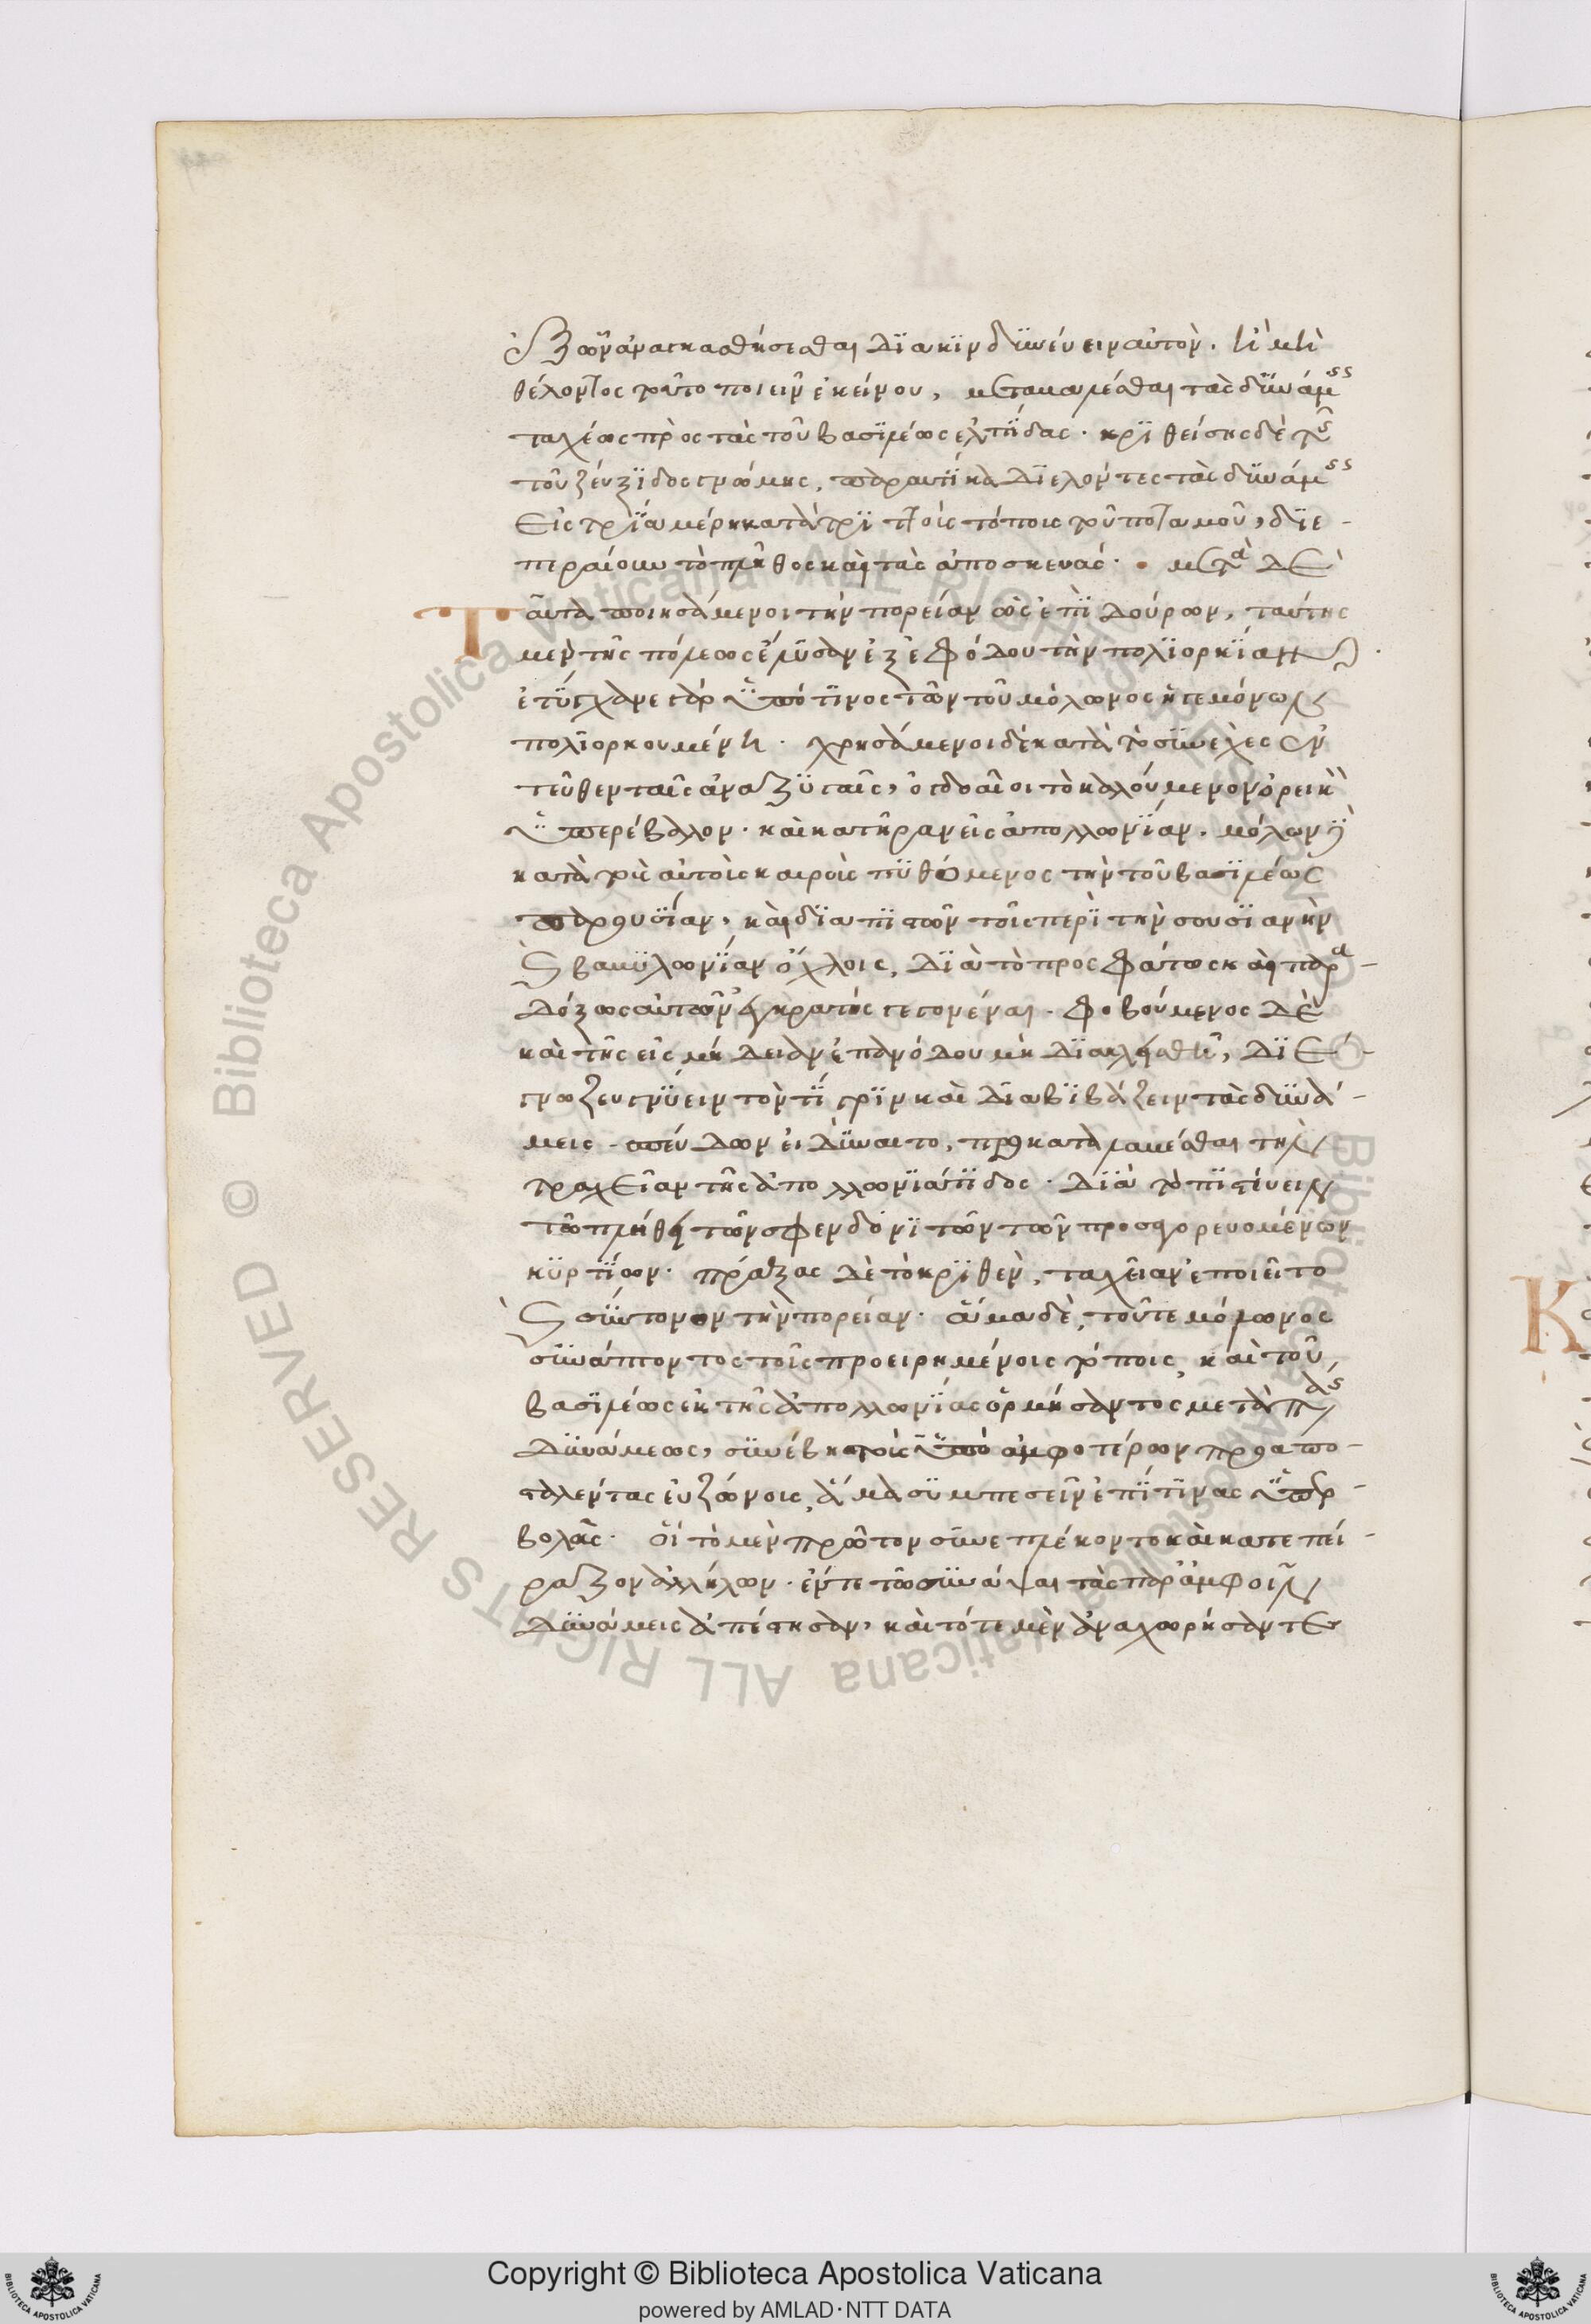 ἐξ ὧν ἀναγκασθήσεσθαι διακινδυνεύειν αὐτὸν. ἢ μὴ
θέλοντος τοῦτο ποιεῖν ἐκείνου, μεταλαμβάνεσθαι τὰς δυνάμεις
ταχέως πρὸς τὰς τοῦ βασιλέως ἐλπίδας. κριθείσης δὲ τῆς
τοῦ ζεύξιδος γνώμης, παραυτίκα διελόντες τὰς δυνάμεις
εἰς τρία μέρη κατὰ τριττοῖς τόποις τοῦ ποταμοῦ, διε-
περαίουν τὸ πλῆθος καὶ τὰς ἀποσκευάς. μετὰ δὲ
Ταῦτα ποιησάμενοι τὴν πορείαν ὡς ἐπὶ δούρων, ταύτης
μὲν τῆς πόλεως ἔλυσαν ἐξ ἐφόδου τὴν πολιορκίαν.
ἐτύγχανε γὰρ ὑπό τινος τῶν τοῦ μόλωνος ἡγεμόνων
πολιορκουμένη. χρησάμενοι δὲ κατὰ τὸ συνεχὲς ἐν
τεῦθεν ταῖς ἀναζυγαῖς, ὀγδοαῖοι τὸ καλούμενον ὀρεικὸν
ὑπερέβαλον. καὶ κατῆραν εἰς ἀπολλωνίαν. μόλων δὲ
κατὰ τοὺς αὐτοὺς καιροὺς πυθόμενος τὴν τοῦ βασιλέως
παρουσίαν, καὶ διαπιστῶν τοῖς περὶ τὴν σουσιανὴν
καὶ βαβυλωνίαν ὄχλοις, διὰ τὸ προσφάτως καὶ παρα-
δόξως αὐτῶν ἐγκρατὴς γεγονέναι. φοβούμενος δὲ
καὶ τῆς εἰς μήδειαν ἐπανόδου μὴ διακλεισθῇ, διέ-
γνω ζευγνύειν τὸν τίγριν καὶ διαβιβάζειν τὰς δυνά-
μεις. σπεύδων εἰ δύναιτο, προκαταλαβέσθαι τὴν
τραχεῖαν τῆς ἀπολλωνιάτιδος. διὰ τὸ πιστεύειν
τῷ πλήθει τῶν σφενδονιτῶν τῶν προσαγορευομένων
κυρτίων. πράξας δὲ τὸ κριθὲν, ταχεῖαν ἐποιεῖτο
καὶ σύντονον τὴν πορείαν. ἅμα δὲ, τοῦ τε μόλωνος
συνάπτοντος τοῖς προειρημένοις τόποις, καὶ τοῦ
βασιλέως ἐκ τῆς ἀπολλωνίας ὁρμήσαντος μετὰ πάσης
δυνάμεως, συνέβη τοὺς ὑπὸ ἀμφοτέρων προαπο-
σταλέντας εὐζώνοις, ἅμα συμπεσεῖν ἐπί τινας ὑπερ-
βολὰς. οἳ τὸ μὲν πρῶτον συνεπλέκοντο καὶ κατεπεί-
ραζον ἀλλήλων. ἐν δὲ τῷ συνάψαι τὰς παρ' ἀμφοῖν
δυνάμεις ἀπέστησαν, καὶ τότε μὲν ἀναχωρήσαντες
Copyright © Biblioteca Apostolica Vaticana
powered by AMLAD·NTT DATA